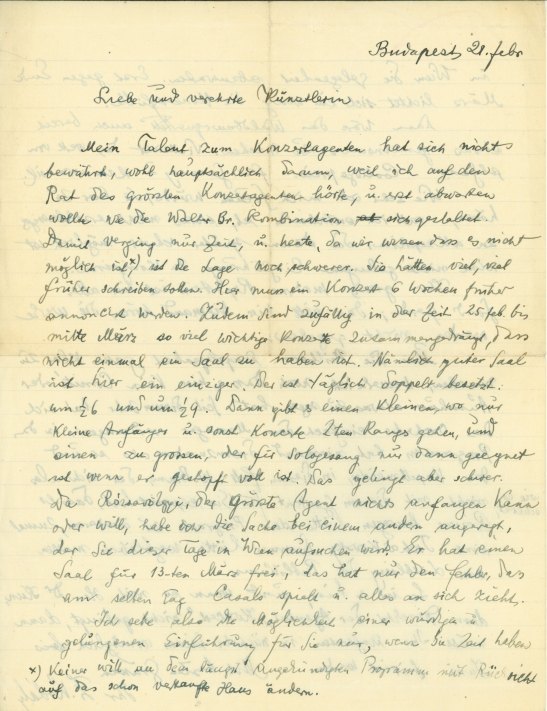 Budapest, 21. febr
Liebe und verehrte Künstlerin
Mein Talent zum Konzertagenten hat sich nichts
bewährt, wohl hauptsächlich darum, weil ich auf den
Rat des grössten Konzertagenten hörte, u. erst abwarten
wollte wie die Walter Br. Kombination sich gestaltet.
Damit verging nur Zeit, u. heute, da wir wissen dass es nicht
möglich ist x) ist die Lage noch schwerer. Sie hätten viel, viel
früher schreiben sollen. Hier muss ein Konzert 6 Wochen früher
annonciert werden. Zudem sind zufällig in der Zeit 25. feb. bis
mitte März so viel wichtige Konzerte zusammengedrängt, dass
nicht einmal ein Saal zu haben ist. Nämlich guter Saal
ist hier ein einziger. Der ist täglich doppelt besetzt.
um ½6 und um ½9. Dann gibt s einen kleinen, wo nur
kleine Anfänger u. sonst Koncerte 2ten Ranges gehen, und
einen zu grossen, der für Sologesang nur dann geeignet
ist wenn er gestopft voll ist. Das gelingt aber schwer.
Da Rózsavölgyi, der grösste Agent nichts anfangen kann
oder will, habe ich die Sache bei einem andern angeregt,
der Sie dieser Tage in Wien aufsuchen wird. Er hat einen
Saal für 13-ten März frei, das hat nur den Fehler, dass
am selben Tag Casals spielt u. alles an sich zieht.
Ich sehe also die Möglichkeit einer würdigen u
gelungenen Einführung für Sie nur, wenn Sie Zeit haben
x) Keiner will an dem längst angekündigten Programm mit Rücksicht
auf das schon verkaufte Haus ändern.